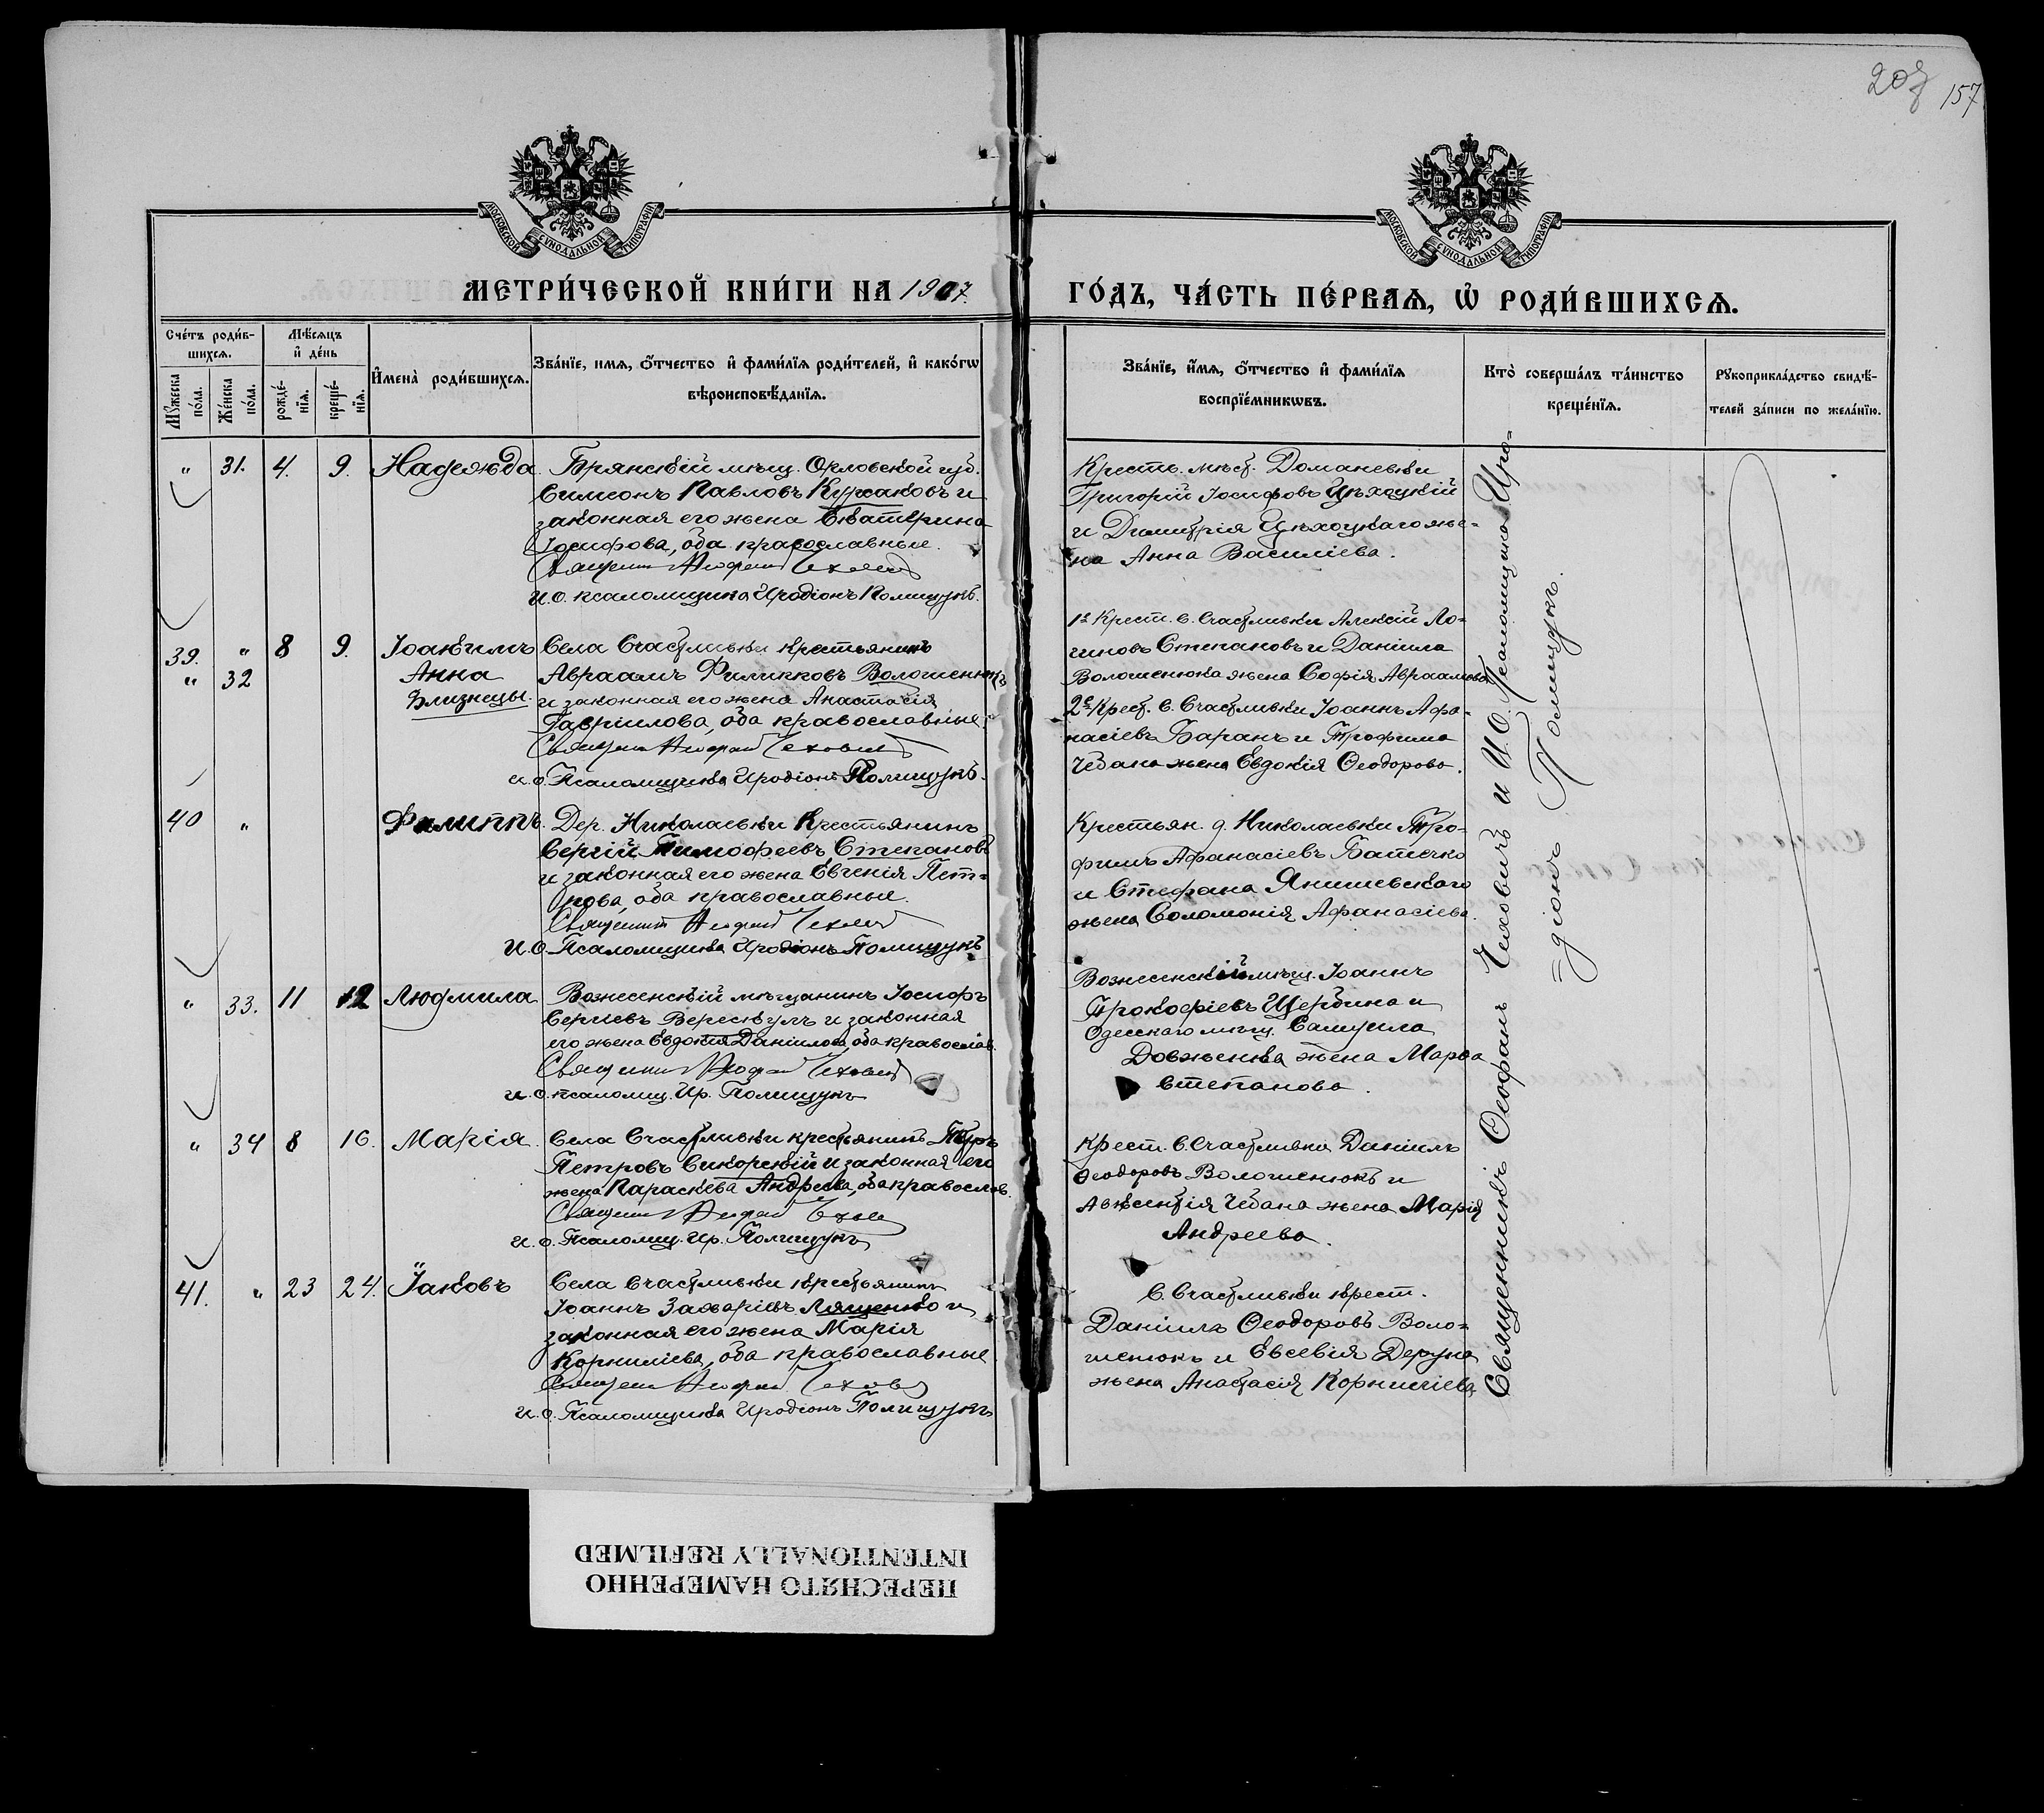 203 157
МОСКОВСКОЙ СУНОДАЛЬНОЙ ТИПОГРАФІИ
МОСКОВСКОЙ СУНОДАЛЬНОЙ ТИПОГРАФІИ
МЕТРИ́ЧЕСКОЙ КНИ́ГИ НА 1907
ГО́ДЪ, ЧА́СТЬ ПЕ́РВАѦ, Ѡ҆ РОДИ́ВШИХСѦ.
Сче́тъ роди́в-
шихсѧ.
Мѣ́сяцъ
и҆ де́нь
Мꙋ́жеска по́ла.
Же́нска по́ла.
рожде́-
нїѧ.
креще́-
нїѧ.
И҆мена̀ роди́вшихсѧ.
Зва́нїе, имѧ, ѻ҆́тчество и҆ фами́лїѧ роди́телей, и҆ како́гѡ
вѣроисповѣ́данїѧ.
Зва́нїе, и҆́мѧ, ѻ҆́тчество и҆ фами́лїѧ
воспрїе́мникѡвъ.
Кто̀ соверша́лъ та́инство
креще́нїѧ.
Рꙋкоприкла́дство свидѣ́-
телей за́писи по жела́нїю.
" 31. 4. 9. Надежда. Брянскій мѣщ. Орловской губ.
Симеонъ Павловъ Куржаковъ и
законная его жена Екатерина
Іосифова, оба православные.
Священ
и. о. псаломщика Иродіонъ Полищукъ.
Крестьян. мѣст. Доманевки
Григорій Іосифовъ Цѣхоцкій
и Димитрія Цѣхоцкаго же-
на Анна Василіева.
39. " 8 9. Іоакимъ Села Счастливки крестьянинъ
" 32 Анна Авраамъ Филипповъ Волошенюкъ
Близнецы. и законная его жена Анастасія
Гавріилова, оба православные.
Священ
и. о. Псаломщика Иродіонъ Полищукъ.
1е Крест. с. Счастливки Алексій Ло-
гиновъ Степановъ и Даніила
Волошенюка жена Софія Авраамова
2е Крест. с. Счастливки Іоаннъ Афа-
насіевъ Баранъ и Трофима
Чебана жена Евдокія Ѳеодорова.
40 " Филиппъ. Дер. Николаевки Крестьянинъ
Сергій Тимофеевъ Степановъ
и законная его жена Евгенія Пет-
рова, оба православные.
Священ
И. О. Псаломщика Иродіонъ Полищукъ
Крестьян. д. Николаевки Тро-
фимъ Афанасіевъ Батечко
и Стефана Янишевскаго
жена Соломонія Афанасіева.
" 33. 11 12 Людмила Вознесенскій мѣщанинъ Іосифъ
Сергіевъ Верескулъ и законная
его жена Евдокія Даніилова, оба православ.
Священ
и. о. псаломщ. Ир. Полищукъ
Вознесенскій мѣщ. Іоаннъ
Прокофіевъ Щербина и
Одесскаго мѣщ. Самуила
Довженка жена Марѳа
Степанова.
" 34 8 16. Марія Села Счастливки крестьянинъ Петръ
Петровъ Сикорскій и законная его
жена Параскева Андреева, оба православ.
Священ
и. о. Псаломщ. Ир. Полищукъ
Крест. с. Счастливки Даніилъ
Ѳеодоровъ Волошенюкъ и
Авксентія Чебана жена Марія
Андреева.
41. " 23 24. Іаковъ Села Счастливки крестьянинъ
Іоаннъ Захаріевъ Лященко и
законная его жена Марія
Корниліева, оба православные
Священ
и. о. Псаломщика Иродіонъ Полищукъ
С. Счастливки крест.
Даніилъ Ѳеодоровъ Воло-
шенюкъ и Евсевія Деруна
жена Анастасія Корниліева
Священникъ Ѳеофанъ Чеховичъ и И. О. Псаломщика Иро-
=діонъ Полищукъ.
ПЕРЕСНЯТО НАМЕРЕННО
INTENTIONALLY REFILMED